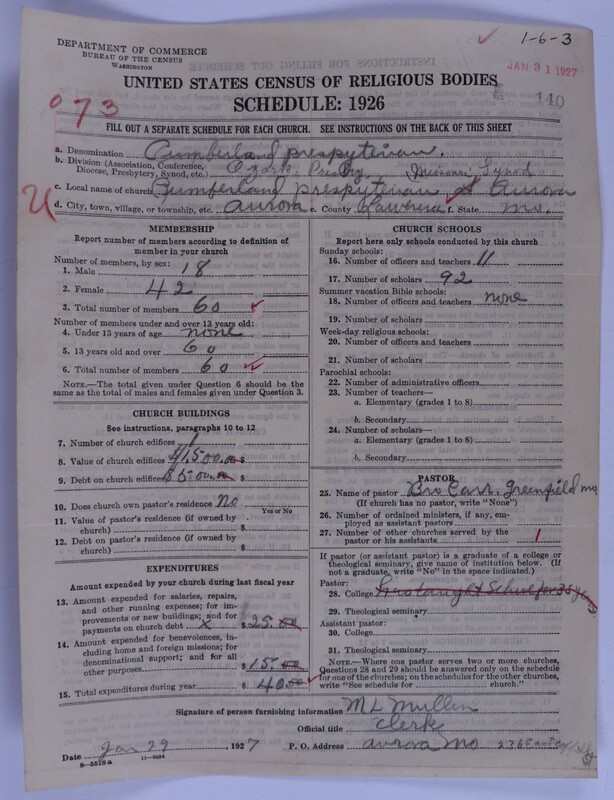 DEPARTMENT OF COMMERCE
BUREAU OF THE CENSUS
WASHINGTON
1-6-3
JAN 31 1927
140
UNITED STATES CENSUS OF RELIGIOUS BODIES
SCHEDULE: 1926
073
FILL OUT A SEPARATE SCHEDULE FOR EACH CHURCH. SEE INSTRUCTIONS ON THE BACK OF THIS SHEET
a. Denomination Cumberland prespyterian.
b. Division (Association, Conference, Diocese, Presbytery, Synod, etc.) Ozark Missouri Synod
c. Local name of church Cumberland prespyterian Aurora
d. City, town, village, or township, etc. Aurora e. County f. State Mo.
MEMBERSHIP
Report number of members according to definition of
member in your church
Number of members, by sex:
1. Male 18
2. Female 42
3. Total number of members 60
Number of members under and over 13 years old:
4. Under 13 years of age none
5. 13 years old and over 60
6. Total number of members 60
NOTE.—The total given under Question 6 should be the
same as the total of males and females given under Question 3.
CHURCH BUILDINGS
See instructions, paragraphs 10 to 12
7. Number of church edifices 1
8. Value of church edifices $1,500.00
9. Debt on church edifices $500.00
10. Does church own pastor's residence? No
Yes or No
11. Value of pastor's residence (if owned by
church) $
12. Debt on pastor's residence (if owned by
church) $
EXPENDITURES
Amount expended by your church during last fiscal year
13. Amount expended for salaries, repairs,
and other running expenses; for im-
provements or new buildings; and for
payments on church debt x $25.00
14. Amount expended for benevolences, in-
cluding home and foreign missions; for
denominational support; and for all
other purposes $15.00
15. Total expenditures during year $40.00
CHURCH SCHOOLS
Report here only schools conducted by this church
Sunday schools:
16. Number of officers and teachers 11
17. Number of scholars 92
Summer vacation Bible schools:
18. Number of officers and teachers none
19. Number of scholars
Week-day religious schools:
20. Number of officers and teachers
21. Number of scholars
Parochial schools:
22. Number of administrative officers
23. Number of teachers—
a. Elementary (grades 1 to 8)
b. Secondary
24. Number of scholars—
a. Elementary (grades 1 to 8)
b. Secondary
PASTOR
25. Name of pastor Bro Carr. Greenfield mo
(If church has no pastor, write "None")
26. Number of ordained ministers, if any, em-
ployed as assistant pastors
27. Number of other churches served by the
pastor or his assistants 1
If pastor (or assistant pastor) is a graduate of a college or
theological seminary, give name of institution below. (If
not a graduate, write "No" in the space indicated.)
Pastor:
28. College Bro taught School for 35 years
29. Theological seminary
Assistant pastor:
30. College
31. Theological seminary
NOTE.—Where one pastor serves two or more churches,
Questions 28 and 29 should be answered only on the schedule
for one of the churches; on the schedules for the other churches,
write "See schedule for church."
Signature of person furnishing information M L Mullen
Official title Clerk
Date Jan 29, 1927 P. O. Address Aurora Mo 236 East
8-5518a 11-9034